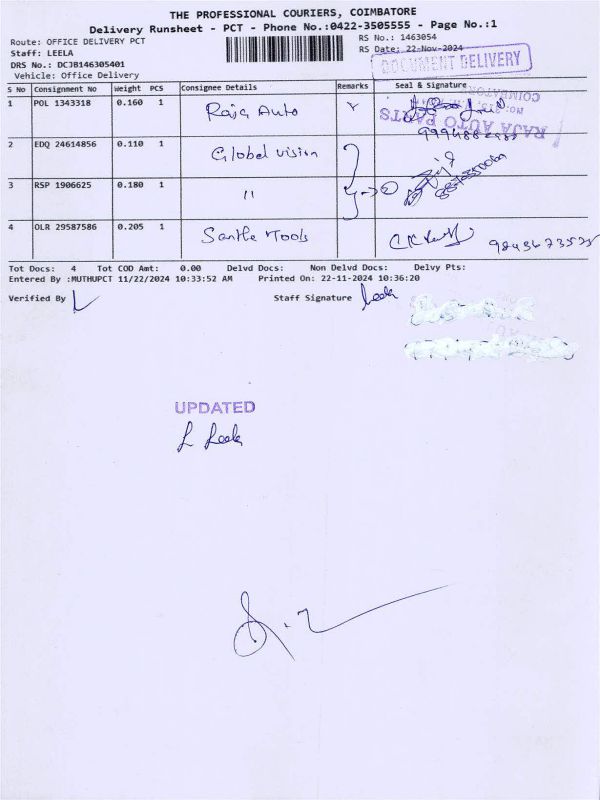 THE PROFESSIONAL COURIERS, COIMBATORE
Delivery Runsheet - PCT - Phone No.:0422-3505555 - Page No.:1
Route: OFFICE DELIVERY PCT
RS No.: 1463054
Staff: LEELA
RS Date: 22-Nov-2024
DRS No.: DCJB146305401
DOCUMENT DELIVERY
Vehicle: Office Delivery
S No Consignment No Weight PCS Consignee Details Remarks Seal & Signature
1 POL 1343318 0.160 1 Raja Auto
RAJA AUTO PARTS
COIMBATORE
2 EDQ 24614856 0.110 1 Global vision
3 RSP 1906625 0.180 1 "
4 OLR 29587586 0.205 1 Tools
Tot Docs: 4 Tot COD Amt: 0.00 Delvd Docs: Non Delvd Docs: Delvy Pts:
Entered By :MUTHUPCT 11/22/2024 10:33:52 AM Printed On: 22-11-2024 10:36:20
Verified By Staff Signature Leela
UPDATED
L Leela